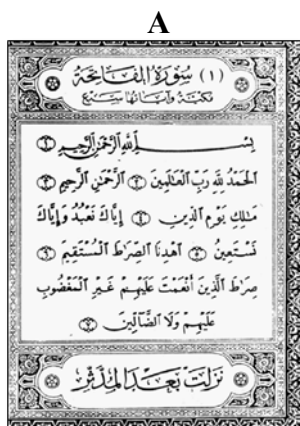 A
(١) سُورَةُ الفَاتِحَة
مَكِّيَّة وَآيَاتُهَا سَبْع
بِسْمِ اللَّهِ الرَّحْمَٰنِ الرَّحِيمِ ١
الْحَمْدُ لِلَّهِ رَبِّ الْعَالَمِينَ ٢ الرَّحْمَٰنِ الرَّحِيمِ ٣
مَالِكِ يَوْمِ الدِّينِ ٤ إِيَّاكَ نَعْبُدُ وَإِيَّاكَ
نَسْتَعِينُ ٥ اهْدِنَا الصِّرَاطَ الْمُسْتَقِيمَ ٦
صِرَاطَ الَّذِينَ أَنْعَمْتَ عَلَيْهِمْ غَيْرِ الْمَغْضُوبِ
عَلَيْهِمْ وَلَا الضَّالِّينَ ٧
نَزَلَتْ بَعْدَ الْمُدَّثِّر